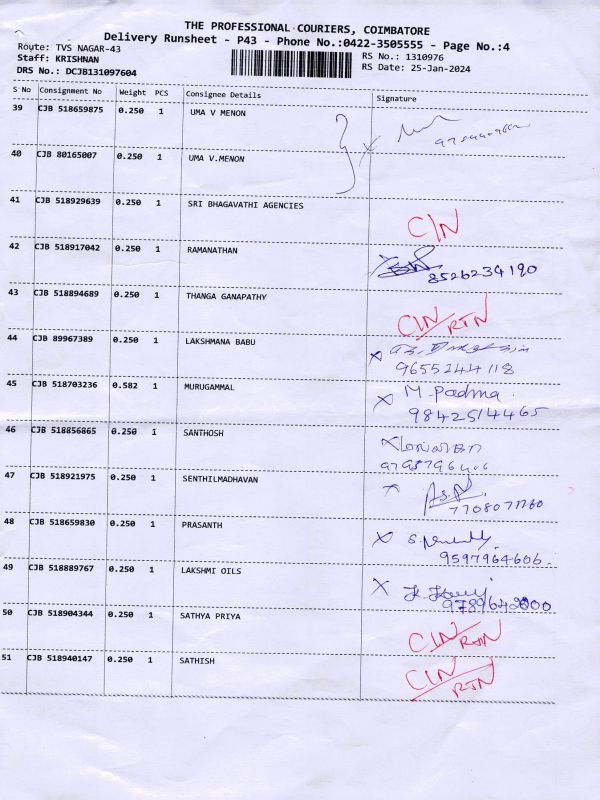 THE PROFESSIONAL COURIERS, COIMBATORE
Delivery Runsheet - P43 - Phone No.:0422-3505555 - Page No.:4
Route: TVS NAGAR-43
Staff: KRISHNAN
DRS No.: DCJB131097604
RS No.: 1310976
RS Date: 25-Jan-2024
S No Consignment No Weight PCS Consignee Details Signature
39 CJB 518659875 0.250 1 UMA V MENON
40 CJB 80165007 0.250 1 UMA V.MENON
41 CJB 518929639 0.250 1 SRI BHAGAVATHI AGENCIES C/N
42 CJB 518917042 0.250 1 RAMANATHAN 8526234190
43 CJB 518894689 0.250 1 THANGA GANAPATHY C/N/RTN
44 CJB 89967389 0.250 1 LAKSHMANA BABU
9655244118
45 CJB 518703236 0.582 1 MURUGAMMAL M. Padma
9842514465
46 CJB 518856865 0.250 1 SANTHOSH
47 CJB 518921975 0.250 1 SENTHILMADHAVAN
48 CJB 518659830 0.250 1 PRASANTH
9597964606.
49 CJB 518889767 0.250 1 LAKSHMI OILS
50 CJB 518904344 0.250 1 SATHYA PRIYA C/N/RTN
51 CJB 518940147 0.250 1 SATHISH C/N/RTN